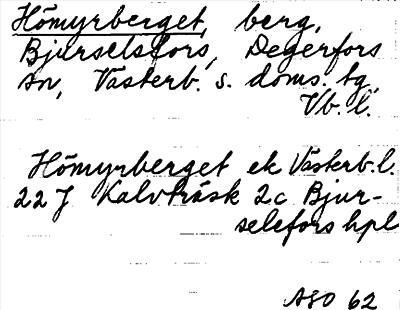 Hömyrberget, berg,
Bjurselsfors, Degerfors
sn, Västerb. s. doms. tg,
Vb. l.
Hömyrberget ek Västerb. l.
22 J Kalvträsk 2c Bjur-
selefors hpl
ASO 62